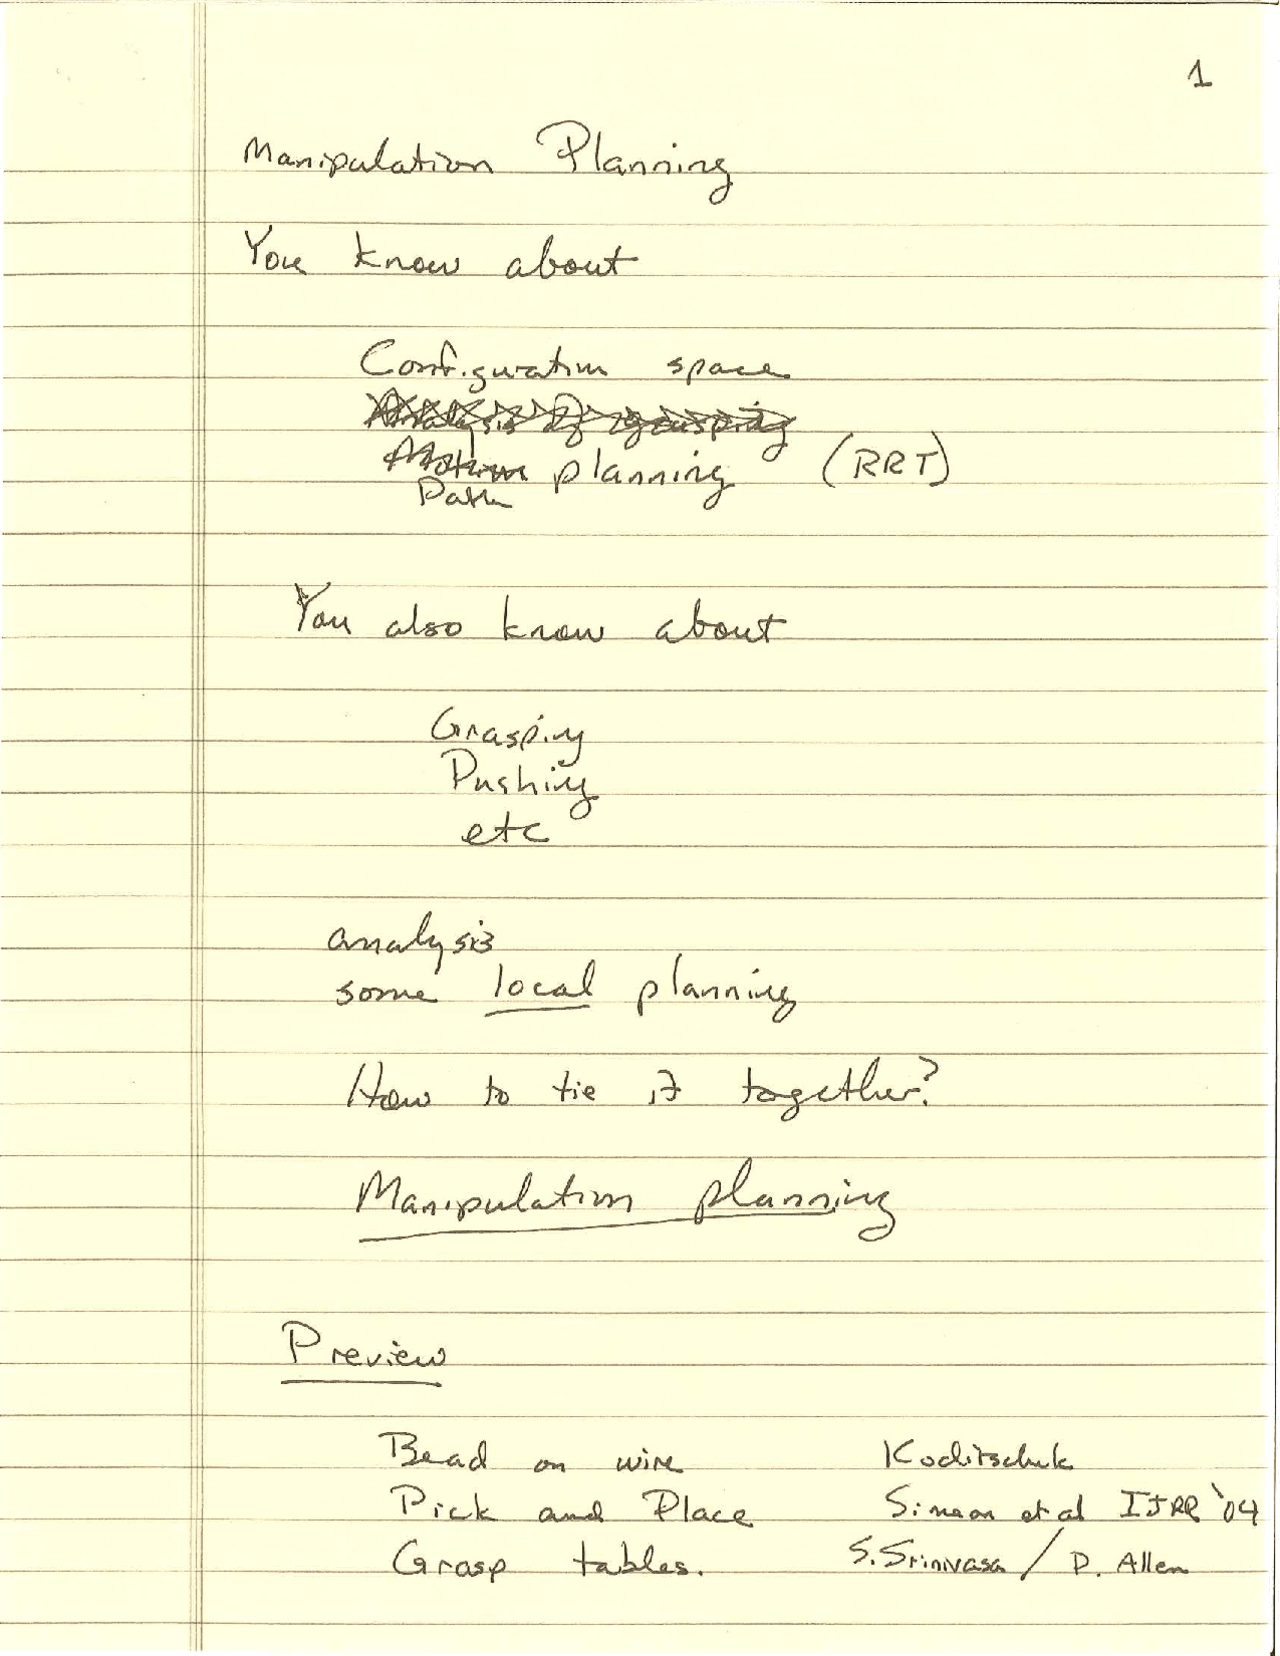 1
Manipulation Planning
You know about
Configuration space
Analysis of grasping
Motion planning (RRT)
Path
You also know about
Grasping
Pushing
etc
analysis
some local planning
How to tie it together?
Manipulation planning
Preview
Bead on wire Koditschek
Pick and Place Simeon et al IJRR '04
Grasp tables. S. Srinivasa / P. Allen